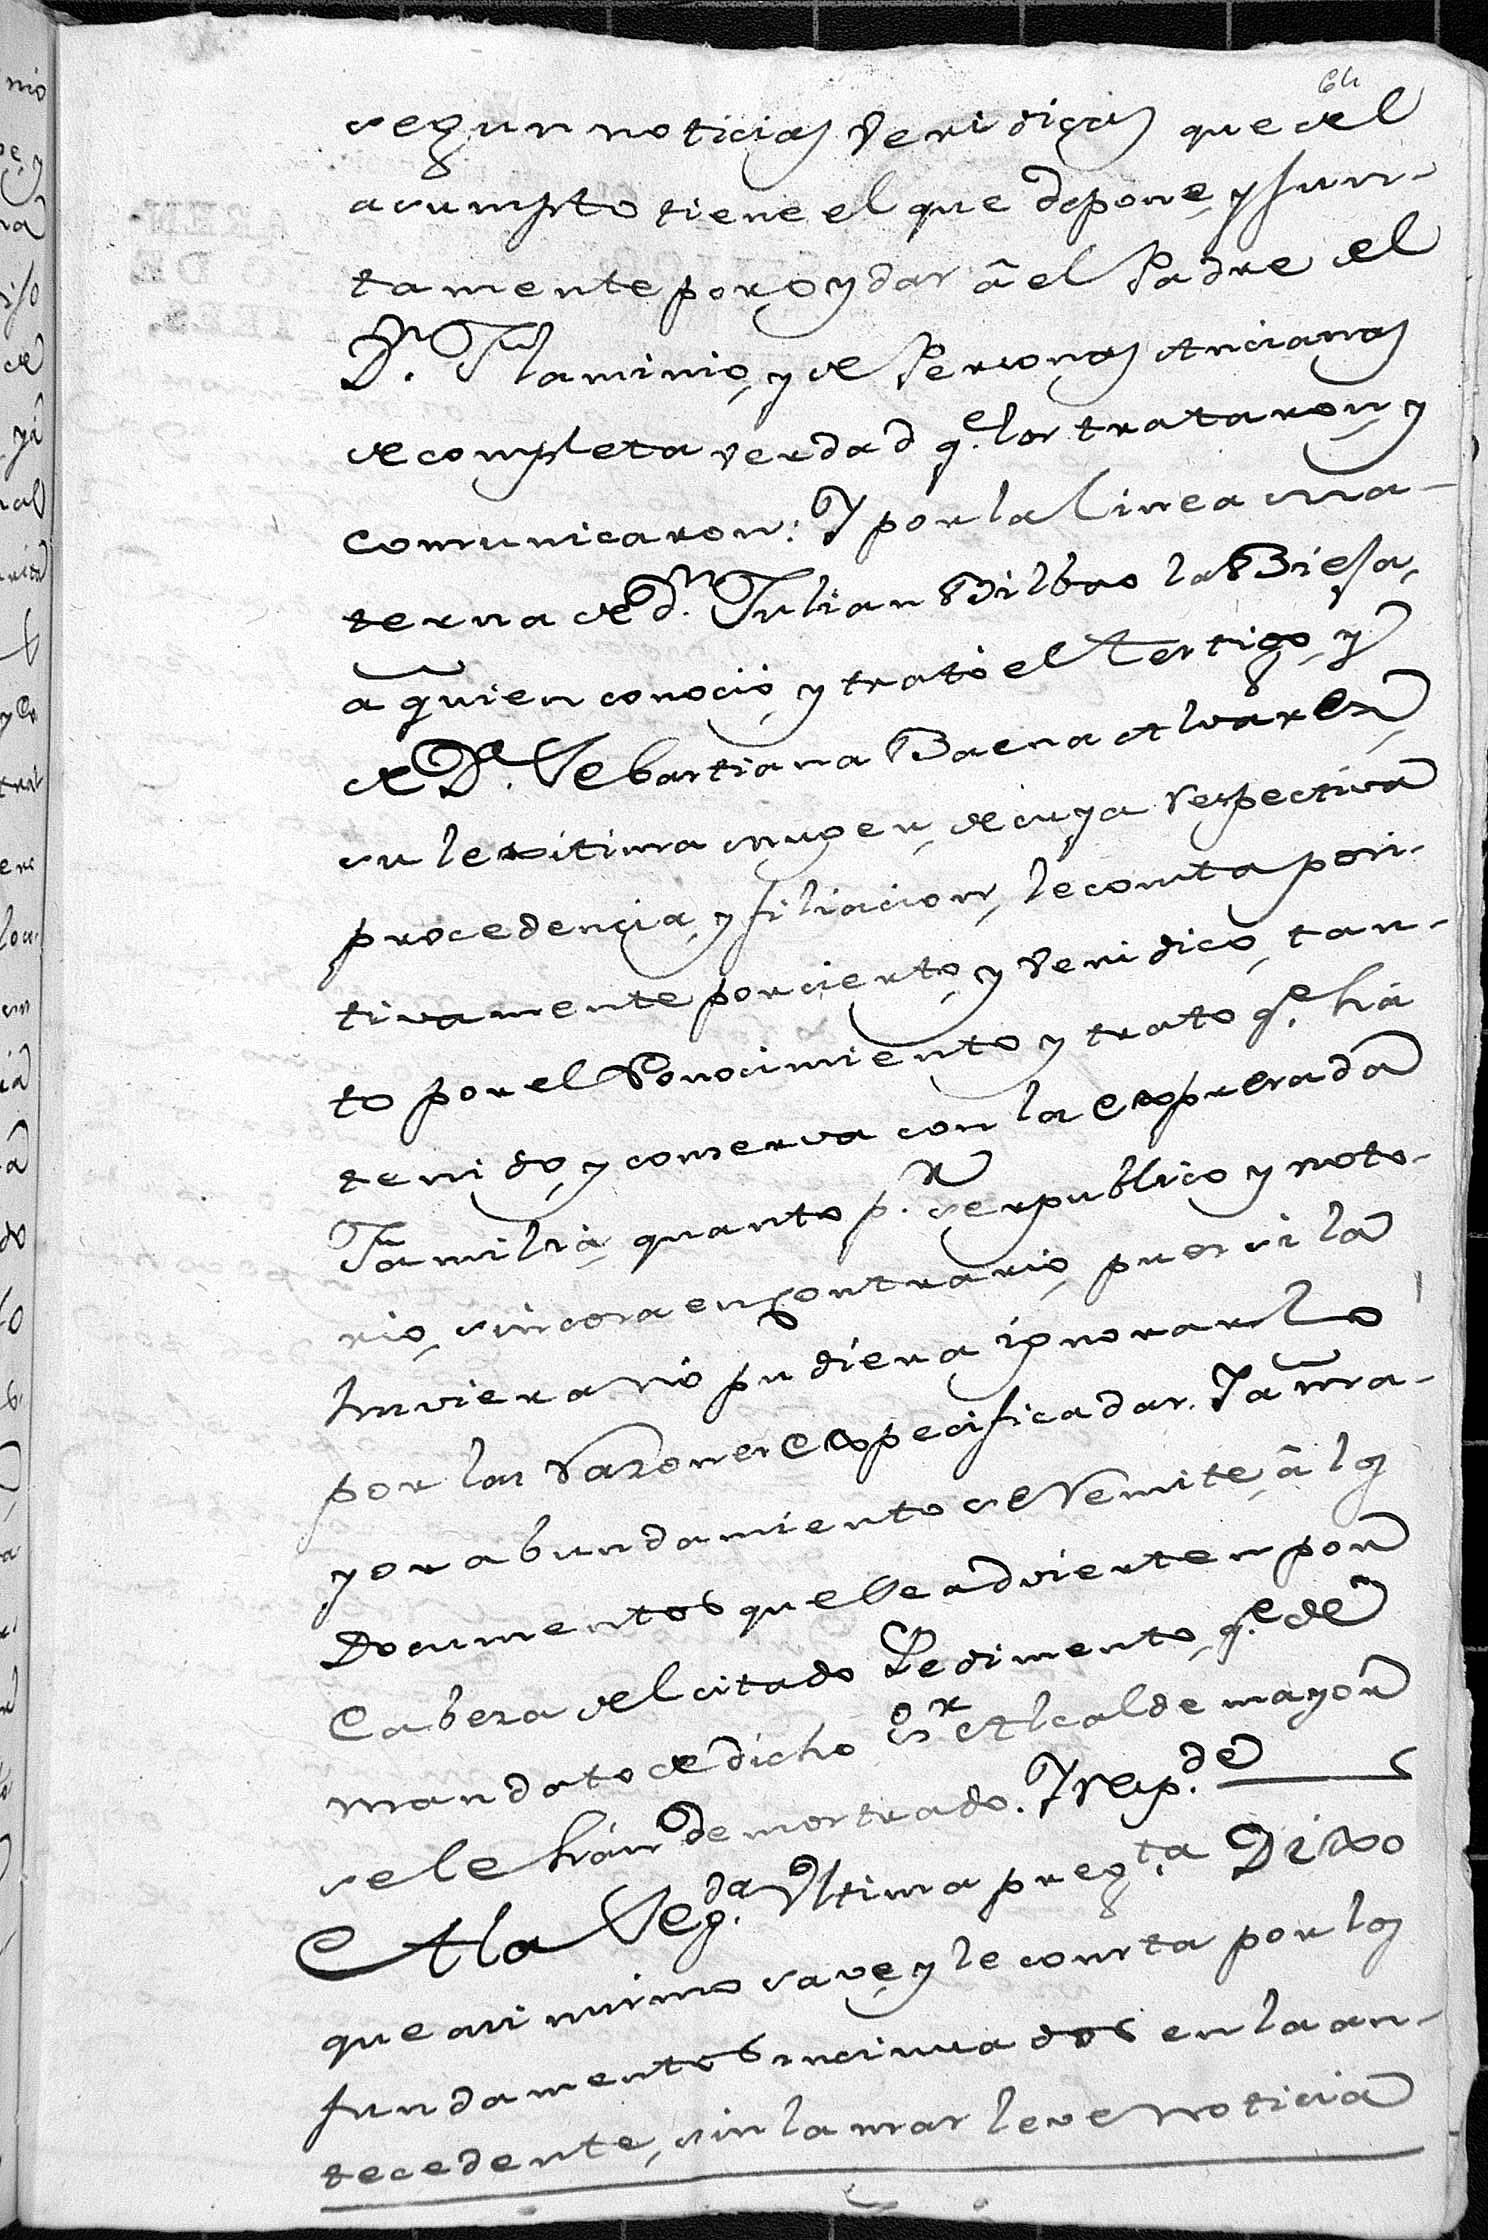 64
segun noticias veridicas que del
asumpto tiene el que depone, y jun-
tamente por oydas â el Padre del
Dn. Flaminio, y de Personas Ancianas
de completa verdad qe. los trataron, y
comunicaron: Y por la linea ma-
terna de dn. Julian Bilbao la Biesa,
a quien conoció, y trató el Testigo, y
de Da. Sebastiana Baena Alvarez,
su lexitima muger, de cuya respectiva
procedencia, y filiacion, le consta posi-
tivamente por cierto, y veridico, tan-
to por el Conocimiento y trato qe. há
tenido, y conserva con la expresada
Familia, quanto pr. ser publico y noto-
rio, sin cosa en Contrario, pues si la
huviera nó pudiera ignorarlo
por las razones expecificadas. Y a ma-
yor abundamiento se remite, â los
Documentos que se advierten por
Cabeza del citado Pedimento, qe. de
mandato de dicho Sr. Alcalde mayor
se le hán demostrado. Y resp.de
A la Seg.da y Ultima preg.ta Dixo
que asi mismo save, y le consta por los
fundamentos incinuados en la an-
tecedente, sin la mas leve noticia